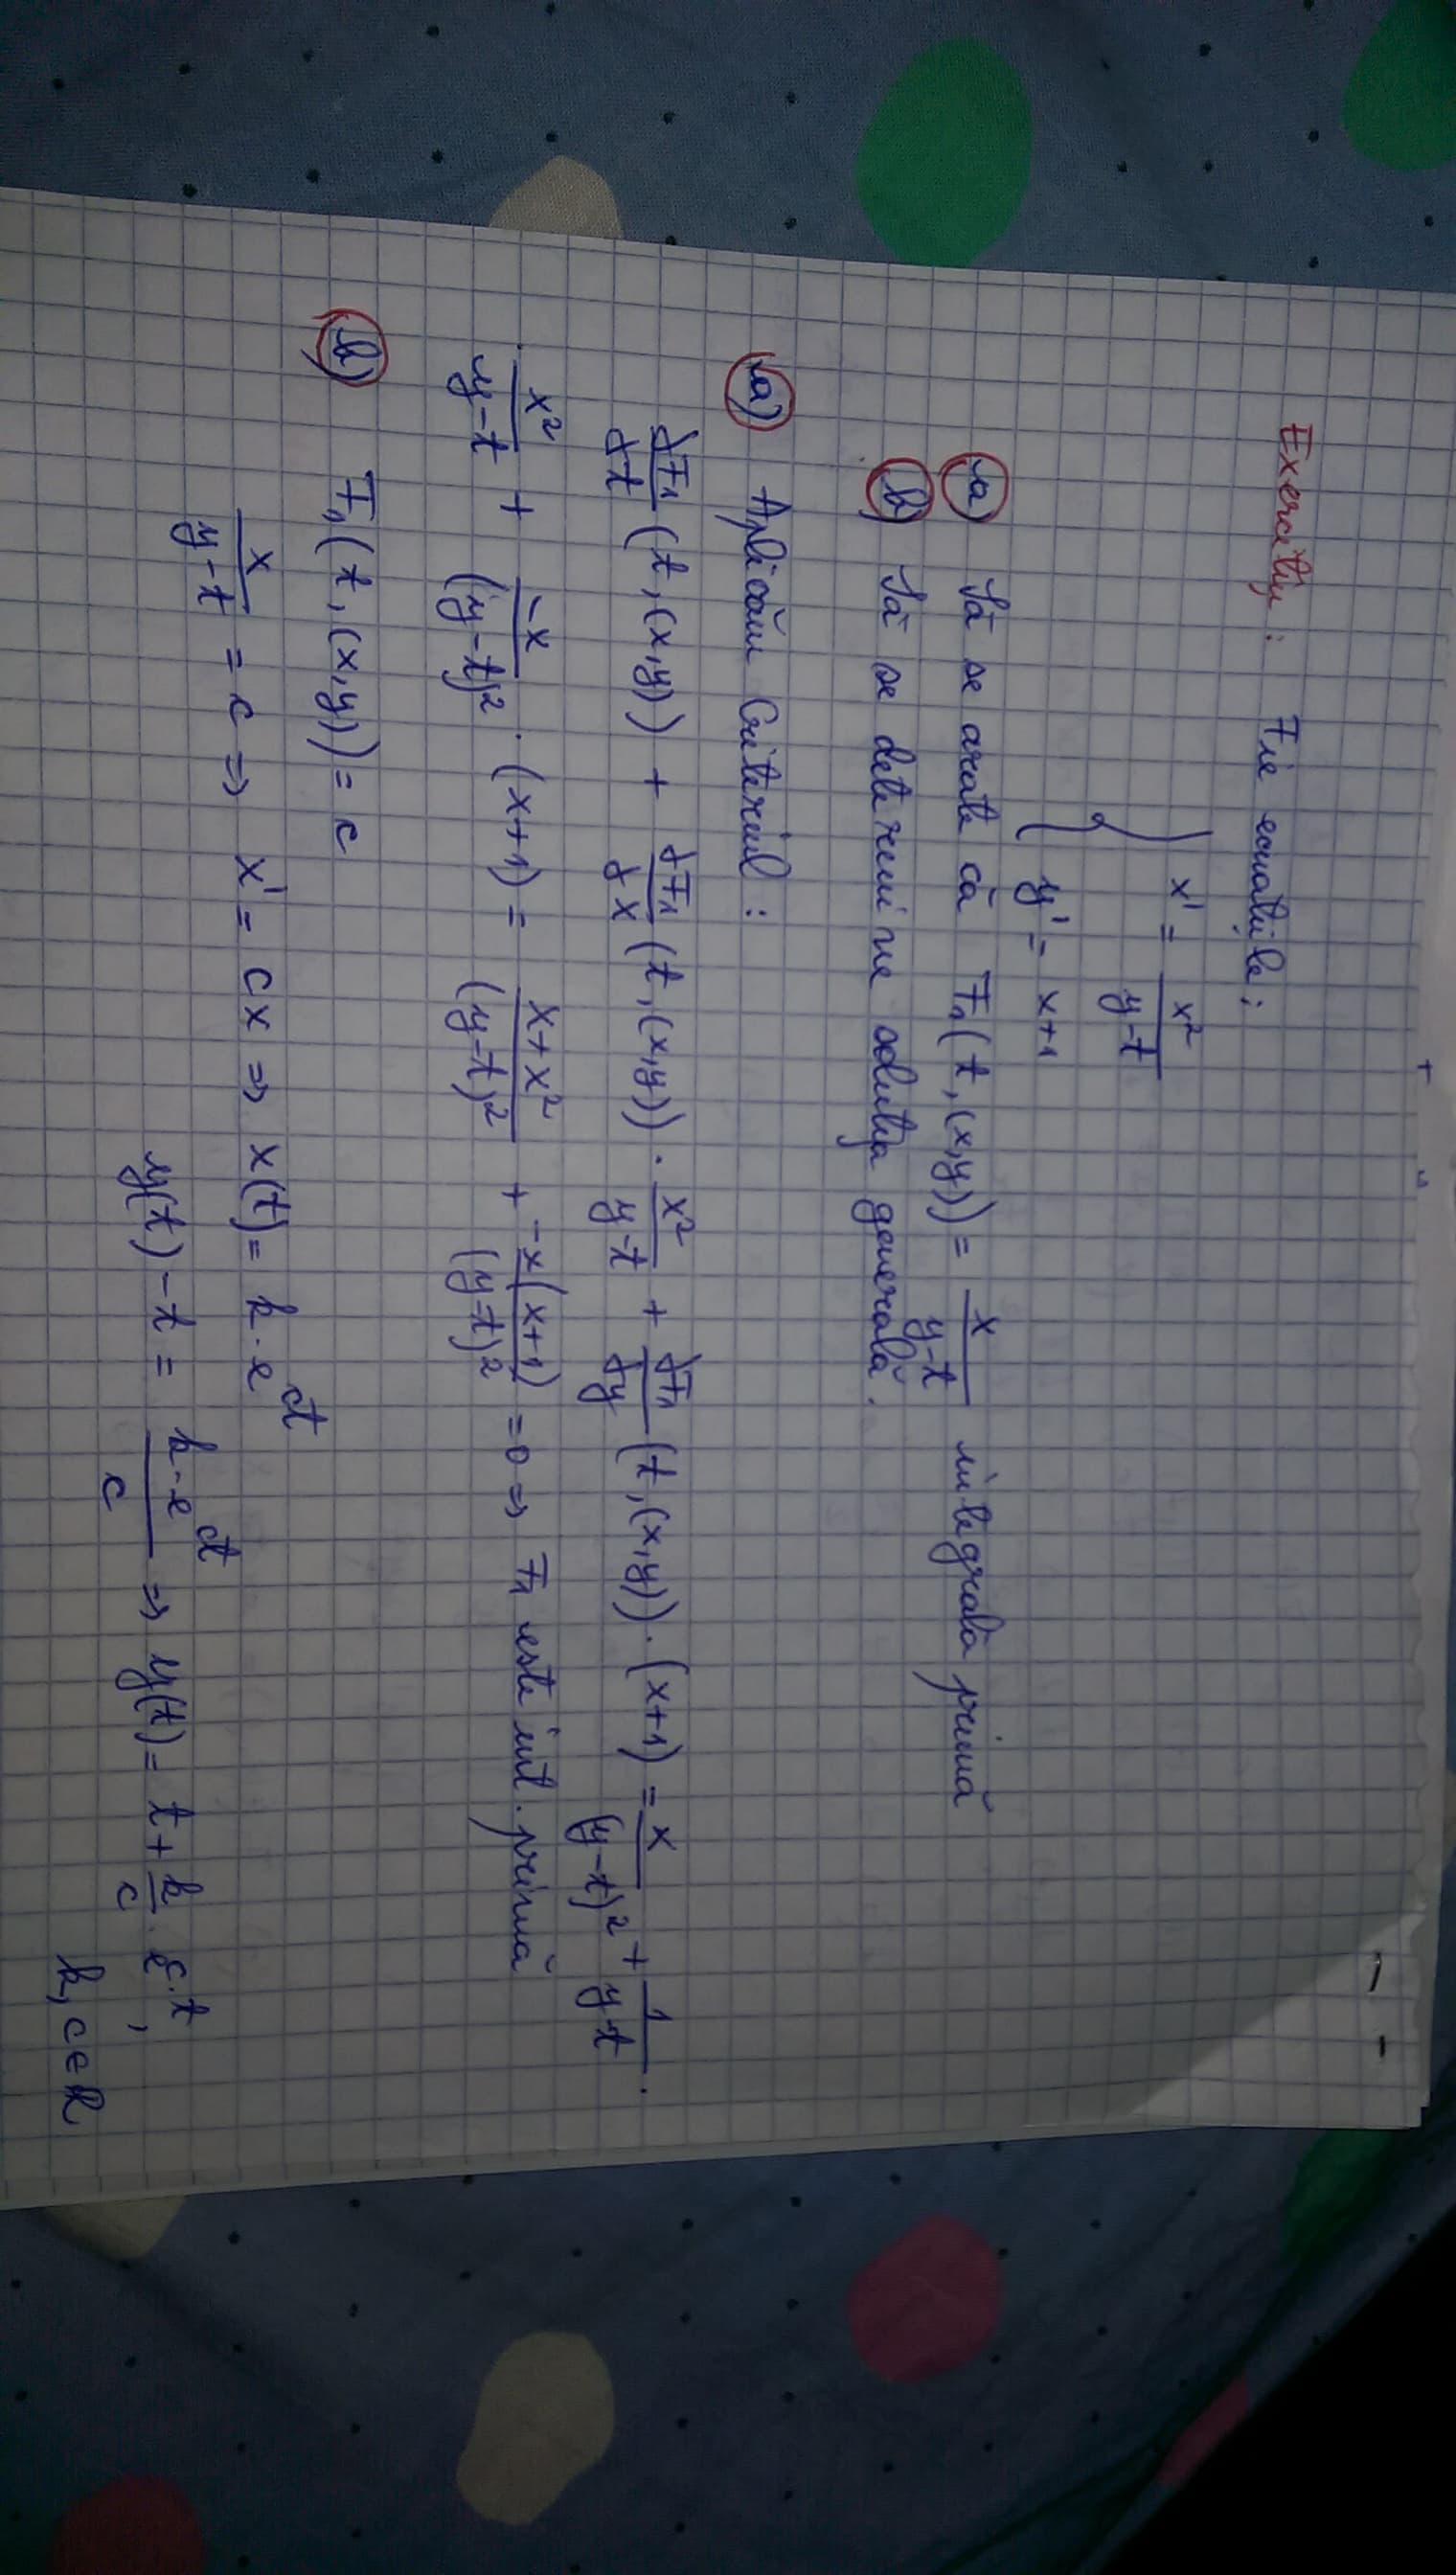 Exercițiu: Fie ecuațiile:
x' = x²/(y-t)
y' = x+1
a) Să se arate că F₁(t,(x,y)) = x/(y-t) integrală primă
b) Să se determine soluția generală.
a) Aplicăm Criteriul:
∂F₁/∂t (t,(x,y)) + ∂F₁/∂x (t,(x,y)) · x²/(y-t) + ∂F₁/∂y (t,(x,y)) · (x+1) = x/(y-t)² + 1/(y-t) ·
· x²/(y-t) + -x/(y-t)² · (x+1) = (x+x²)/(y-t)² + -x(x+1)/(y-t)² = 0 ⇒ F₁ este int. primă
b) F₁(t,(x,y)) = c
x/(y-t) = c ⇒ x' = cx ⇒ x(t) = k · e^ct
y(t) - t = k · e^ct/c ⇒ y(t) = t + k/c · e^c·t,
k, c ∈ ℝ